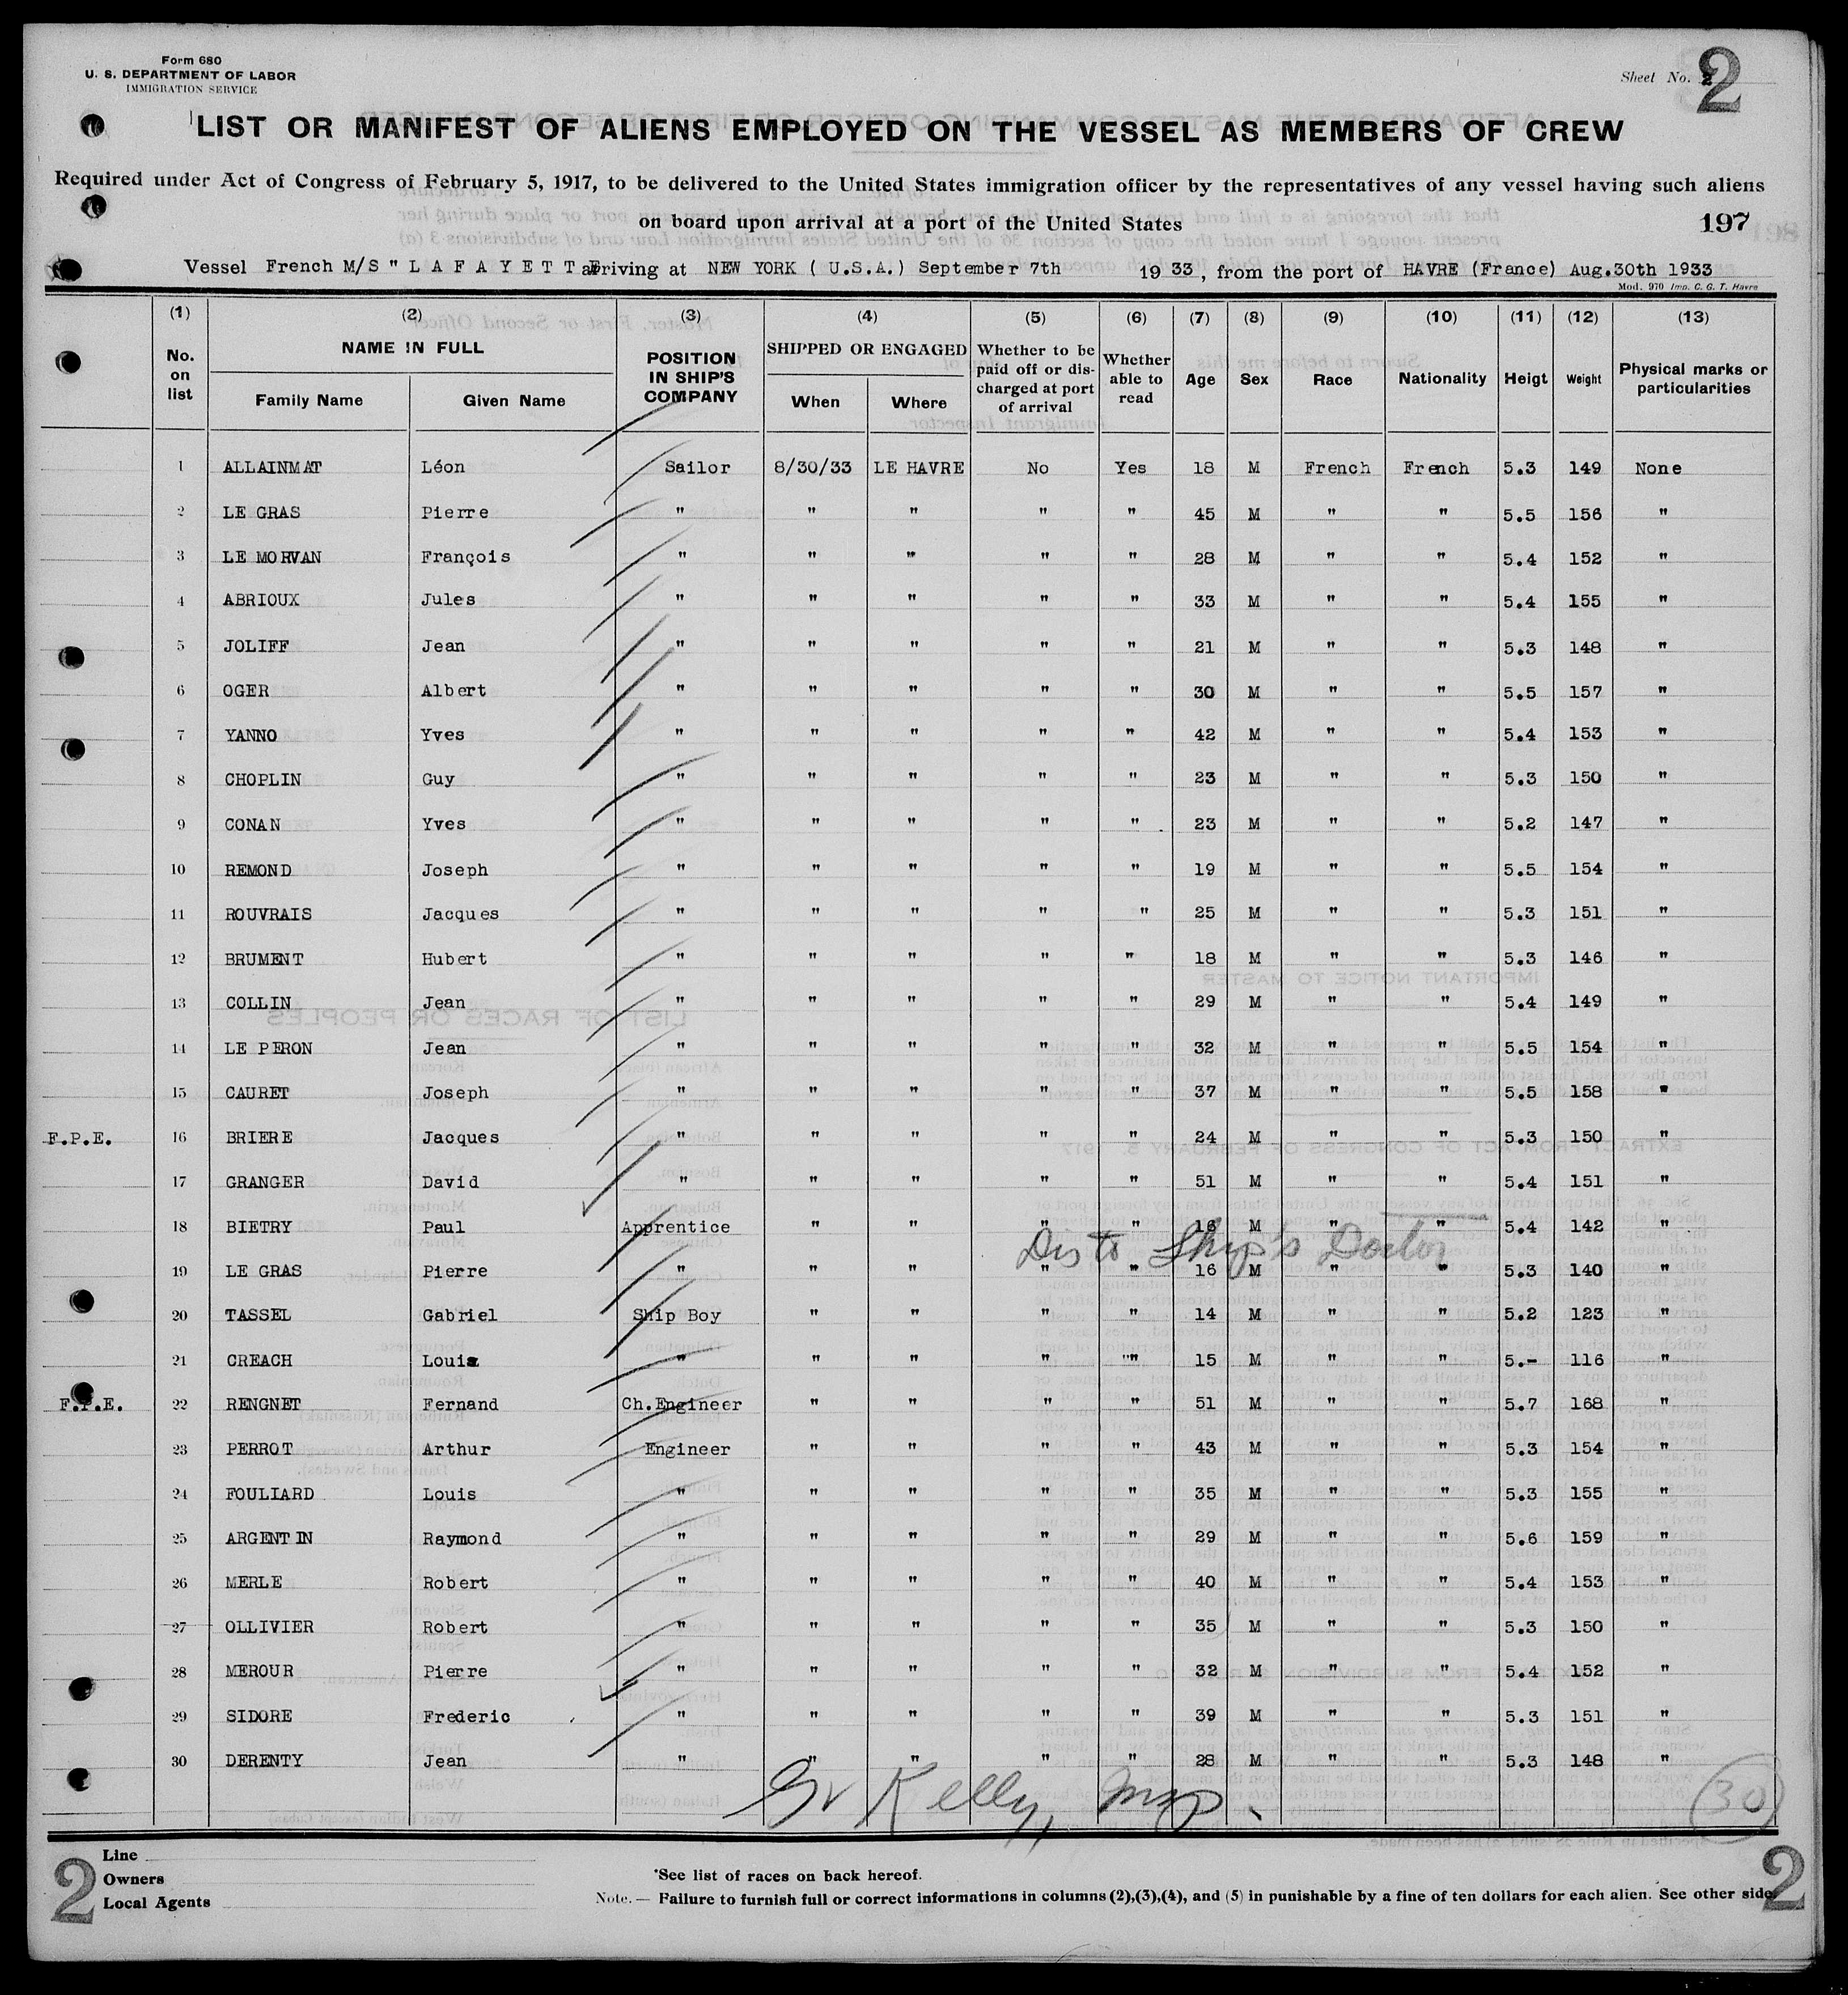 Form 680
U. S. DEPARTMENT OF LABOR
IMMIGRATION SERVICE
Sheet No. 2
2
LIST OR MANIFEST OF ALIENS EMPLOYED ON THE VESSEL AS MEMBERS OF CREW
Required under Act of Congress of February 5, 1917, to be delivered to the United States immigration officer by the representatives of any vessel having such aliens
on board upon arrival at a port of the United States
197
Vessel French M/S " L A F A Y E T T E arriving at NEW YORK ( U.S.A.) September 7th 19 33 , from the port of HAVRE (France) Aug.30th 1933
Mod. 970 Imp. C. G. T. Havre
(1) (2) (3) (4) (5) (6) (7) (8) (9) (10) (11) (12) (13)
No. on list NAME IN FULL Family Name Given Name POSITION IN SHIP'S COMPANY SHIPPED OR ENGAGED When Where Whether to be paid off or discharged at port of arrival Whether able to read Age Sex Race Nationality Heigt Weight Physical marks or particularities
1 ALLAINMAT Léon Sailor 8/30/33 LE HAVRE No Yes 18 M French French 5.3 149 None
2 LE GRAS Pierre " " " " " 45 M " " 5.5 156 "
3 LE MORVAN François " " " " " 28 M " " 5.4 152 "
4 ABRIOUX Jules " " " " " 33 M " " 5.4 155 "
5 JOLIFF Jean " " " " " 21 M " " 5.3 148 "
6 OGER Albert " " " " " 30 M " " 5.5 157 "
7 YANNO Yves " " " " " 42 M " " 5.4 153 "
8 CHOPLIN Guy " " " " " 23 M " " 5.3 150 "
9 CONAN Yves " " " " " 23 M " " 5.2 147 "
10 REMOND Joseph " " " " " 19 M " " 5.5 154 "
11 ROUVRAIS Jacques " " " " " 25 M " " 5.3 151 "
12 BRUMENT Hubert " " " " " 18 M " " 5.3 146 "
13 COLLIN Jean " " " " " 29 M " " 5.4 149 "
14 LE PERON Jean " " " " " 32 M " " 5.5 154 "
15 CAURET Joseph " " " " " 37 M " " 5.5 158 "
F.P.E. 16 BRIERE Jacques " " " " " 24 M " " 5.3 150 "
17 GRANGER David " " " " " 51 M " " 5.4 151 "
18 BIETRY Paul Apprentice " " " " 16 M " " 5.4 142 "
Dis to Ship's Doctor
19 LE GRAS Pierre " " " " " 16 M " " 5.3 140 "
20 TASSEL Gabriel Ship Boy " " " " 14 M " " 5.2 123 "
21 CREACH Louis " " " " " 15 M " " 5.- 116 "
F.P.E. 22 RENGNET Fernand Ch.Engineer " " " " 51 M " " 5.7 168 "
23 PERROT Arthur Engineer " " " " 43 M " " 5.3 154 "
24 FOULIARD Louis " " " " " 35 M " " 5.3 155 "
25 ARGENTIN Raymond " " " " " 29 M " " 5.6 159 "
26 MERLE Robert " " " " " 40 M " " 5.4 153 "
27 OLLIVIER Robert " " " " " 35 M " " 5.3 150 "
28 MEROUR Pierre " " " " " 32 M " " 5.4 152 "
29 SIDORE Frederic " " " " " 39 M " " 5.3 151 "
30 DERENTY Jean " " " " " 28 M " " 5.3 148 "
Kelly, Insp.
30
2
Line
Owners
Local Agents
*See list of races on back hereof.
Note. — Failure to furnish full or correct informations in columns (2),(3),(4), and (5) in punishable by a fine of ten dollars for each alien. See other side
2